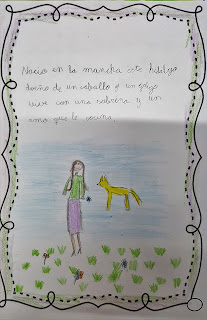 Nacio en la mancha este hidalgo
dueño de un caballo y un galgo
vive con una sobrina y un
amo que le cocina.